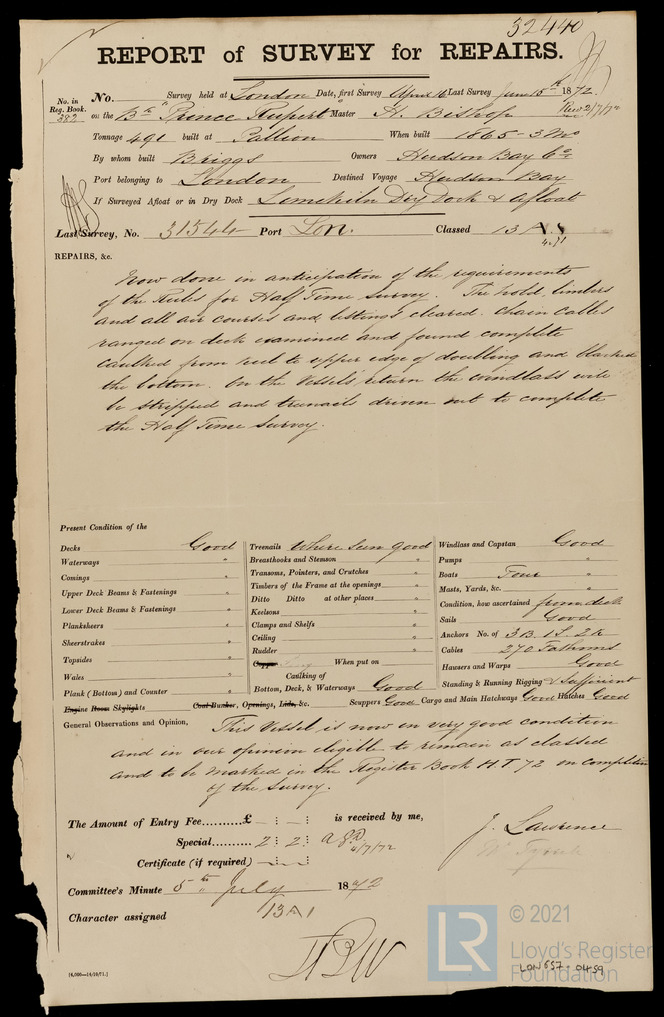 32440
REPORT of SURVEY for REPAIRS.
No. in Reg. Book. 382
No. Survey held at London Date, first Survey April 16 Last Survey June 15th 1872.
on the Bk "Prince Rupert" Master H. Bishop Rec 2/7/72
Tonnage 491 built at Pallion When built 1865 - 3 Mo
By whom built Briggs Owners Hudson Bay Co.
Port belonging to London Destined Voyage Hudson Bay
If Surveyed Afloat or in Dry Dock Limekiln Dry Dock & afloat
Last Survey, No. 31544 Port Lon. Classed 13 A 1
4.71
REPAIRS, &c.
Now done in anticipation of the requirements
of the Rules for Half Time Survey. The hold, limbers
and all air courses and listings cleared. Chain Cables
ranged on deck examined and found complete
Caulked from keel to upper edge of doubling and blacked
the bottom. On the Vessels return the windlass will
be stripped and treenails driven out to complete
the Half Time Survey.
Present Condition of the
Decks Good
Waterways "
Comings "
Upper Deck Beams & Fastenings "
Lower Deck Beams & Fastenings "
Planksheers "
Sheerstrakes "
Topsides "
Wales "
Plank (Bottom) and Counter "
Engine Room Skylights
Treenails Where seen good
Breasthooks and Stemson "
Transoms, Pointers, and Crutches "
Timbers of the Frame at the openings "
Ditto Ditto at other places "
Keelsons "
Clamps and Shelfs "
Ceiling "
Rudder "
Copper When put on
Caulking of
Bottom, Deck, & Waterways Good
Coal Bunker, Openings, Lids, &c.
Windlass and Capstan Good
Pumps "
Boats Four "
Masts, Yards, &c. "
Condition, how ascertained from deck
Sails Good
Anchors No. of 3 B. 1 S. 2 K
Cables 270 Fathoms
Hawsers and Warps Good
Standing & Running Rigging & Sufficient
Scuppers Good Cargo and Main Hatchways Good Hatches Good
General Observations and Opinion, This Vessel is now in very good condition
and in our opinion eligible to remain as classed
and to be marked in the Register Book H.T 72 on completion
of the survey.
The Amount of Entry Fee......£ is received by me,
Special.......... 2 : 2 :
4/7/72
Certificate (if required)
Committee's Minute 5th July 1872
Character assigned 13 A 1
J. Lawrence
[6,000—14/10/71.]
LR © 2021
Lloyd's Register
Foundation
LON 657-0459